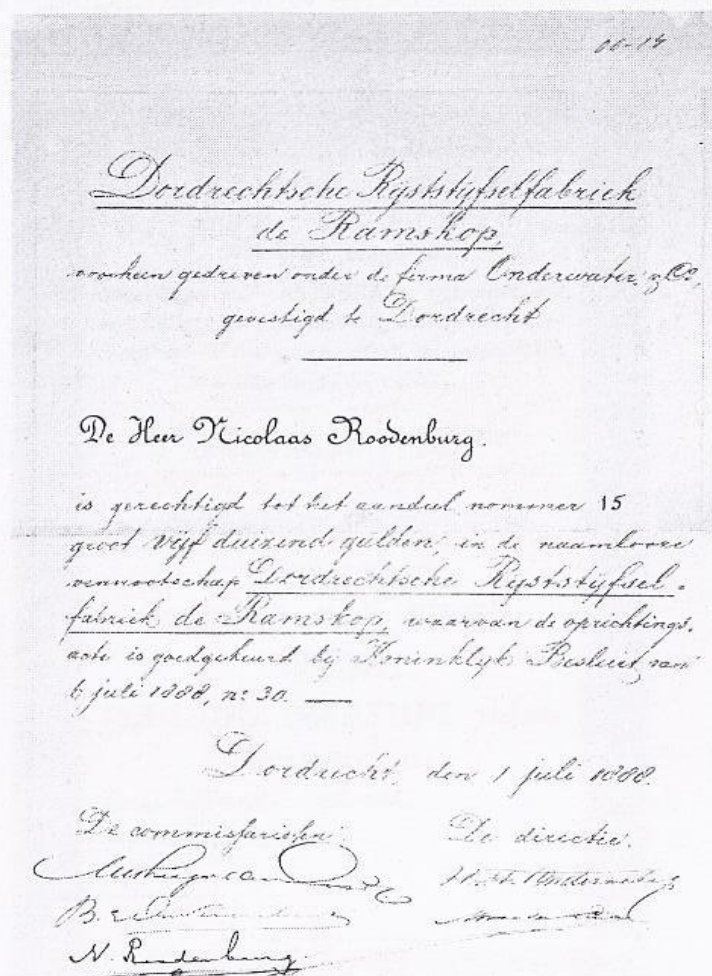 06-14
Dordrechtsche Rijststijfselfabriek
de Ramskop,
voorheen gedreven onder de firma Onderwater & Co,
gevestigd te Dordrecht
De Heer Nicolaas Roodenburg.
is gerechtigd tot het aandeel nommer 15
groot vijf duizend gulden, in de naamlooze
vennootschap Dordrechtsche Rijststijfsel-
fabriek de Ramskop, waarvan de oprichtings-
acte is goedgekeurd bij Koninklijk Besluit van
6 juli 1888, no 30.
Dordrecht, den 1 juli 1888.
De commissarissen: De directie.
N. Roodenburg.